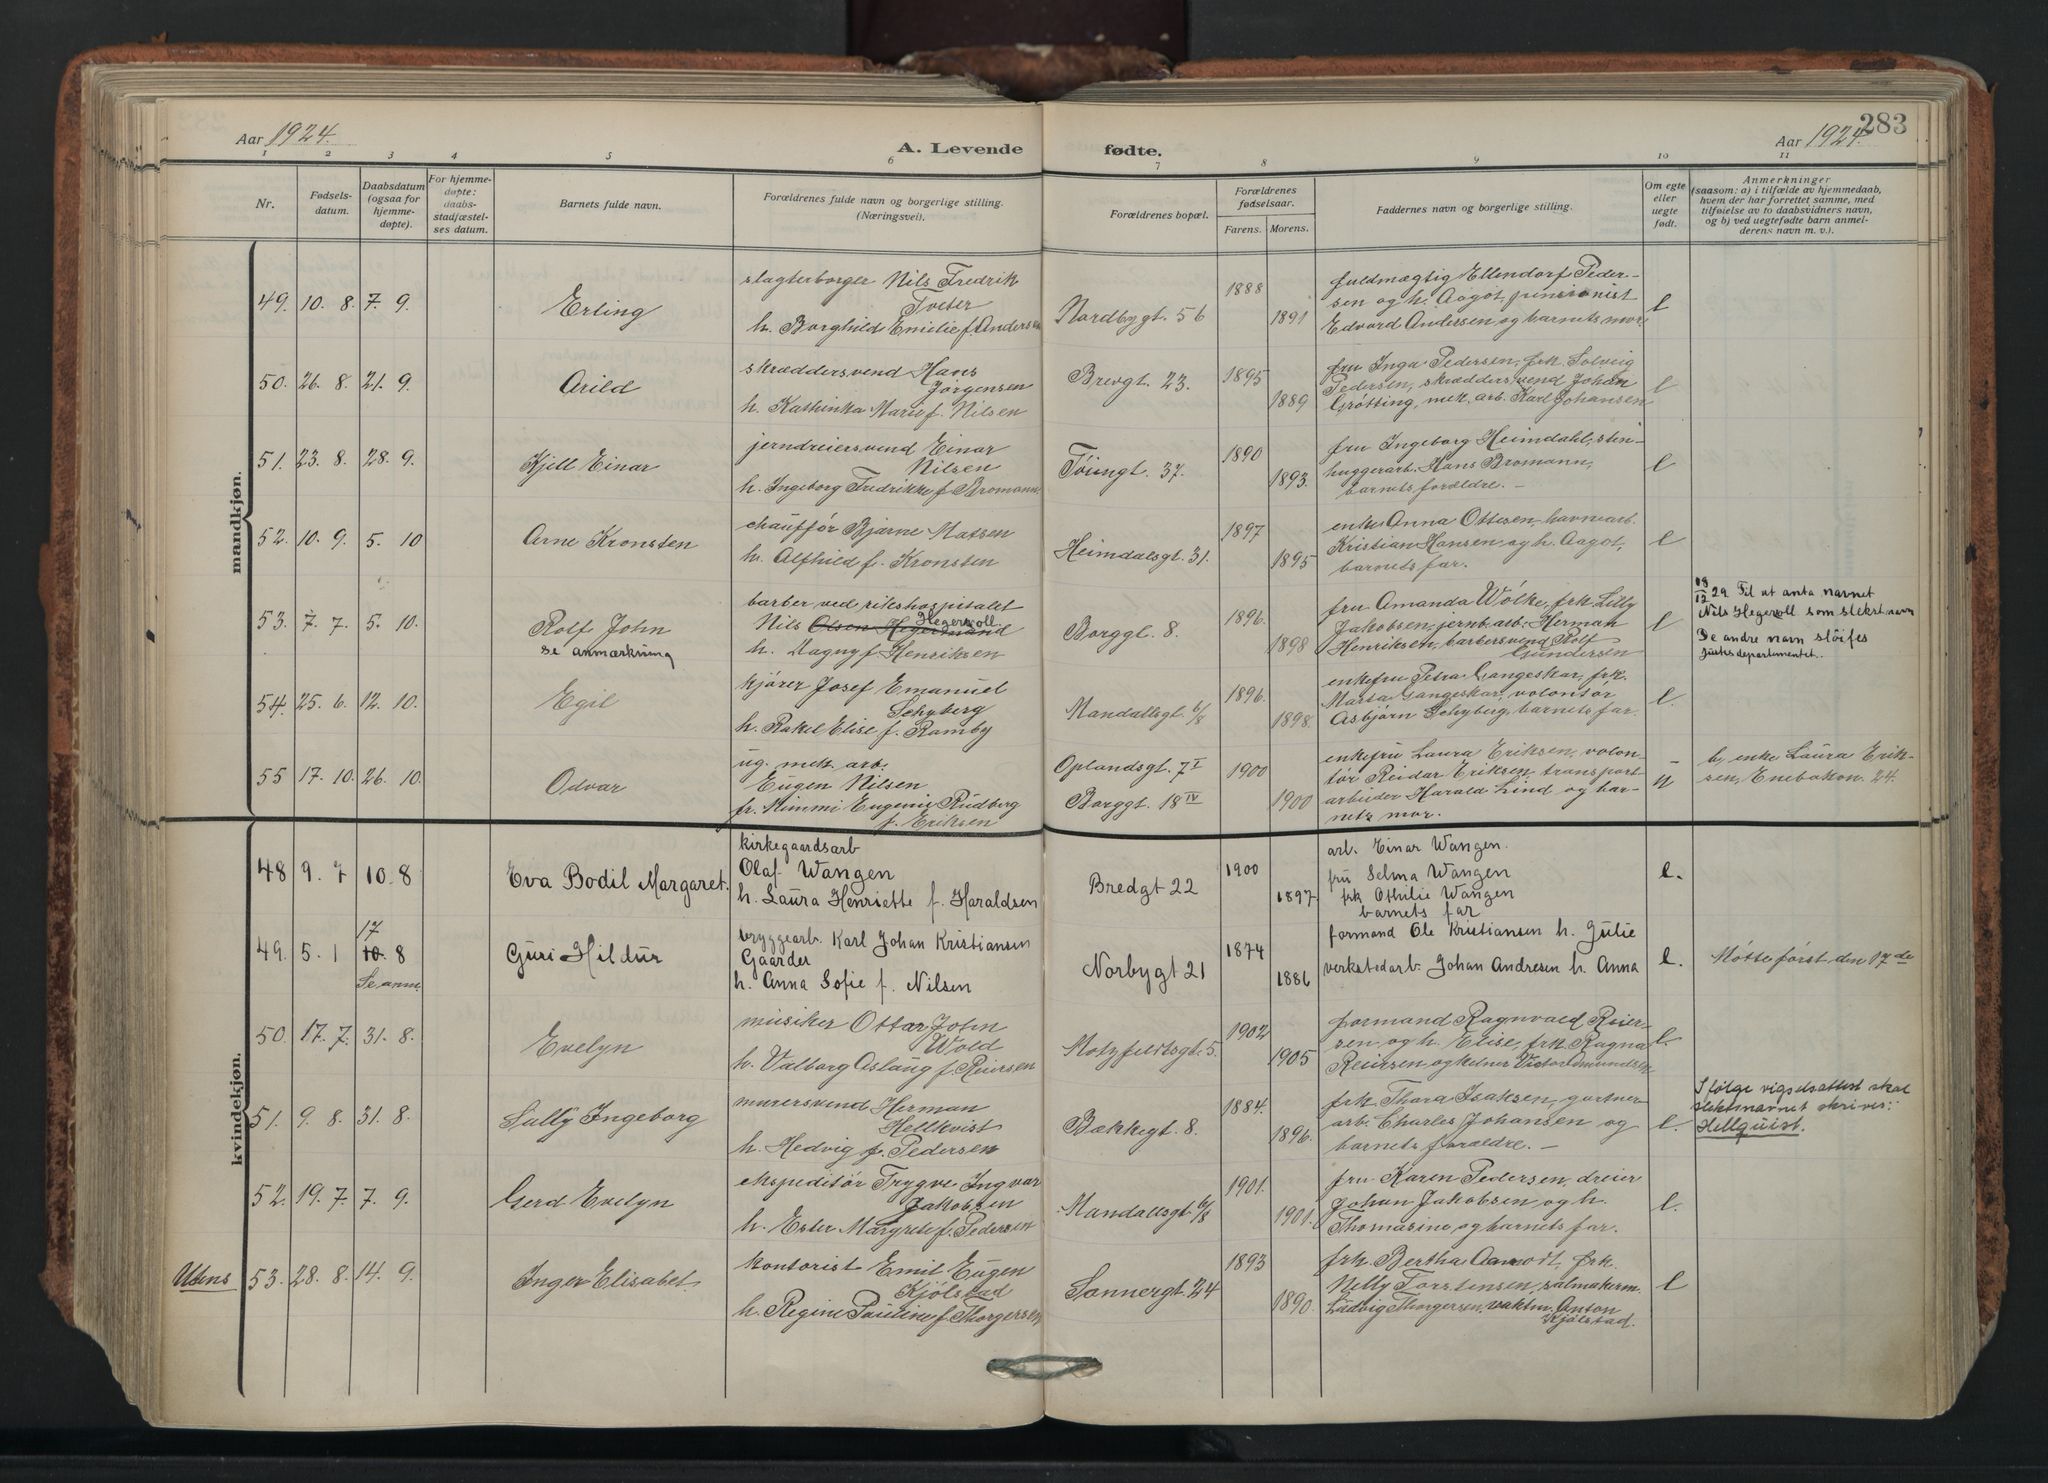 283
Aar 1924.
A. Levende fødte.
Aar 1924.
1 2 3 4 5 6 7 8 9 10 11
Nr.
Fødsels-
datum.
Daabsdatum
(ogsaa for
hjemme-
døpte).
For hjemme-
døpte:
daabs-
stadfæstel-
ses datum.
Barnets fulde navn.
Forældrenes fulde navn og borgerlige stilling.
(Næringsvei).
Forældrenes bopæl.
Forældrenes
fødselsaar.
Farens. Morens.
Faddernes navn og borgerlige stilling.
Om egte
eller
uegte
født.
Anmerkninger
(saasom: a) i tilfælde av hjemmedaab,
hvem der har forrettet samme, med
tilføielse av to daabsvidners navn,
og b) ved uegtefødte barn anmel-
derens navn m. v.).
mandkjøn.
49. 10. 8. 7. 9.
Erling
slagterborger Nils Fredrik
Tveter
h. Borghild Emilie f. Andersen
Nordbygt. 56
1888
1891
fuldmægtig Ellendorf Peder-
sen og h. Aagot, pensionist
Edvard Andersen og barnets mor.
l
50. 26. 8. 21. 9.
Arild
skræddersvend Hans
Jørgensen
h. Kathinka Marie f. Nilsen
Brevgt. 23.
1895
1889
fru Inga Pedersen, frk. Solveig
Pedersen, skræddersvend Johan
Grøtting, mek. arb. Karl Johansen
l
51. 23. 8. 28. 9.
Kjell Einar
jerndreiersvend Einar
Nilsen
h. Ingeborg Fredrikke f. Bromann.
Tøiengt. 37.
1890
1893.
fru Ingeborg Heimdahl, sten-
huggerarb. Hans Bromann,
barnets forældre. -
l
52. 10. 9. 5. 10
Arne Kronsten
chauffør Bjarne Matsen
h. Alfhild f. Kronsten
Heimdalsgt. 31.
1897
1895
enke Anna Ottesen, havnearb.
Kristian Hansen og h. Aagot,
barnets far.
l
53. 7. 7. 5. 10.
Rolf John
se anmærkning
barber ved rikshospitalet
Hegervoll
Nils Olsen Hegerstrand
h. Dagny f. Henriksen
Borggt. 8.
1896.
1898
fru Amanda Wølke, frk. Lilly
Jakobsen, jernb. arb. Herman
Henriksen, barbersvend Rolf
Gundersen
l
18/12 29 Til at anta navnet
Nils Hegervoll som slektsnavn
De andre navn sløifes
Justisdepartementet.
54. 25. 6. 12. 10.
Egil
kjører Josef Emanuel
Schyberg
h. Rakel Elise f. Ramby
Mandallsgt. 6/8
1896.
1898.
enkefru Petra Gangeskar, frk.
Marta Gangeskar, volontør
Asbjørn Schyberg, barnets far.
l.
55 17. 10. 26. 10.
Odvar
ug. mek. arb.
Eugen Nilsen
fr. Mimmi Eugenie Rudberg
f. Eriksen
Oplandsgt. 7 I
Borggt. 18 IV
1900
1900
enkefru Laura Eriksen, volon-
tør Reidar Eriksen, transport-
arbeider Harald Lind og bar-
nets mor.
u
b, enke Laura Erik-
sen, Enebakkv. 24.
kvindekjøn.
48 9. 7 10. 8
Eva Bodil Margaret.
kirkegaardsarb
Olaf Wangen
h. Laura Henriette f. Haraldsen
Bredgt 22
1900
1897
arb. Einar Wangen.
fru Selma Wangen
frk Othilie Wangen
barnets far
l.
17
49. 5. 1 10. 8
Se anm.
Guri Hildur
bryggearb. Karl Johan Kristiansen
Gaarder
h. Anna Sofie f. Nilsen
Norbygt 21
1874
1886
formand Ole Kristiansen h. Julie
verkstedarb. Johan Andresen h. Anna
l.
Møtte først den 17de
50. 17. 7. 31. 8.
Evelyn
musiker Ottar John
Wold
h. Valborg Aslaug f. Reiersen
Motzfeldtsgt. 5.
1902
1905
formand Ragnvald Reier-
sen og h. Elise, frk. Ragna
Reiersen og kelner Victor Amundsen
l.
51. 9. 8. 31. 8.
Sally Ingeborg
murersvend Herman
Hellkvist
h. Hedvig f. Pedersen
Bækkegt. 8.
1884.
1896.
frk. Thora Isaksen, gartner-
arb. Charles Johansen og
barnets forældre. -
l.
I følge vigselsattest skal
slektsnavnet skrives:
Hellquist.
52. 19. 7. 7. 9.
Gerd Evelyn
ekspeditør Trygve Ingvar
Jakobsen
h. Ester Margrete f. Pedersen
Mandallsgt. 6/8
1901.
1901.
fru Karen Pedersen, dreier
Johan Jakobsen og h.
Thomasine og barnets far.
l.
Utens
53. 28. 8. 14. 9.
Inger Elisabet
kontorist Emil Eugen
Kjølstad
h. Regine Pauline f. Thorgersen
Sannergt. 24
1893
1890.
frk. Bertha Aamodt, frk.
Nelly Torstensen, salmakerm.
Ludvig Thorgersen, vaktm. Anton
Kjølstad.
l